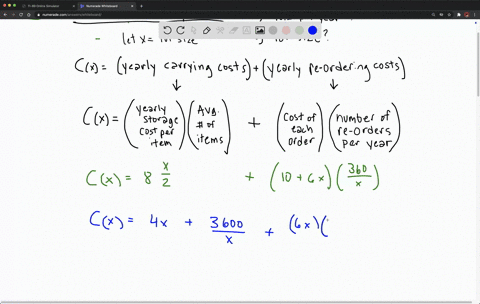 numerade.com
Numerade Whiteboard
- let x = lot size
C(x) = (yearly carrying costs) + (yearly re-ordering costs)
C(x) = (yearly storage cost per item) (Avg. # of items) + (cost of each order) (number of re-orders per year)
C(x) = 8 x/2 + (10 + 6x) (360/x)
C(x) = 4x + 3600/x + (6x)(